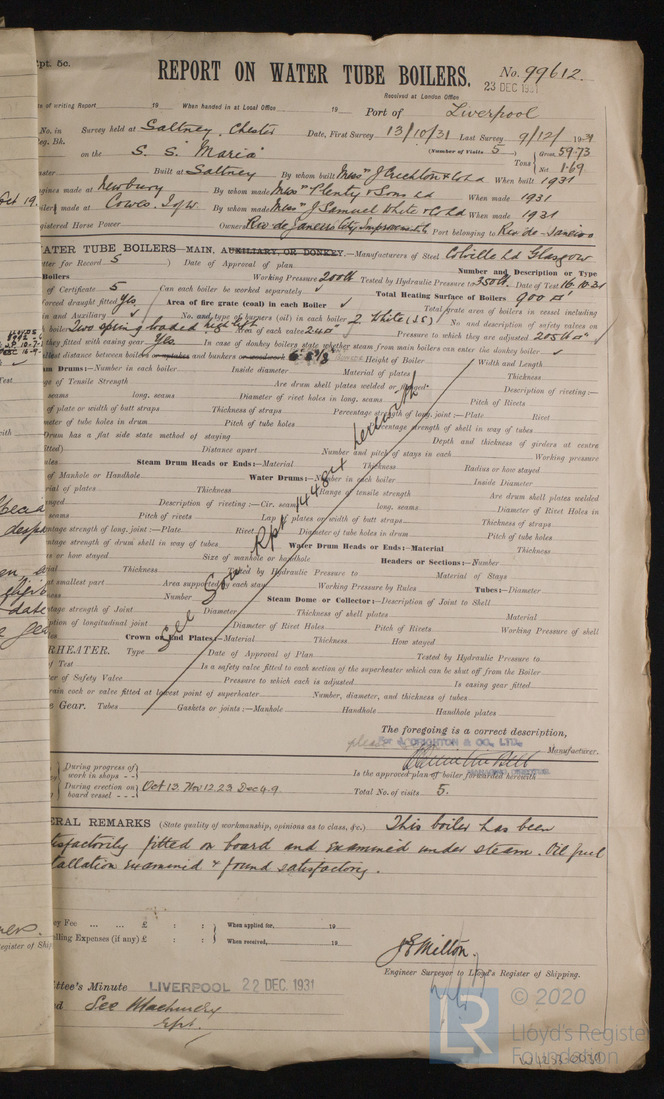 Rpt. 5c.
REPORT ON WATER TUBE BOILERS.
No. 99612.
23 DEC 1931
Received at London Office
of writing Report 19 When handed in at Local Office 19 Port of Liverpool
No. in Survey held at Saltney, Chester Date, First Survey 13/10/31 Last Survey 9/12/ 1931
Reg. Bk. (Number of Visits 5)
on the S. S. "Maria" Tons Gross 59.73
Net 1.69
Built at Saltney By whom built Mess J Crichton & Co Ld When built 1931
made at Newbury By whom made Mess Plenty & Sons Ld When made 1931
made at Cowes. I of W By whom made Mess J Samuel White & Co Ld When made 1931
Horse Power Owners Rio de Janeiro City Improvements Port belonging to Rio de Janeiro
WATER TUBE BOILERS—MAIN, AUXILIARY, OR DONKEY.—Manufacturers of Steel Colville Ld Glasgow
for Record S ) Date of Approval of plan Number and Description or Type
Boilers Working Pressure 200 lb Tested by Hydraulic Pressure to 350 lb. Date of Test 16.10.31
of Certificate 5 Can each boiler be worked separately Total Heating Surface of Boilers 900
forced draught fitted Yes Area of fire grate (coal) in each Boiler Total grate area of boilers in vessel including
and Auxiliary No. and type of burners (oil) in each boiler 2 White (J S) No. and description of safety valves on
boiler Two spring loaded high lift Area of each valve Pressure to which they are adjusted 205 lb
they fitted with easing gear Yes. In case of donkey boilers state whether steam from main boilers can enter the donkey boiler
distance between boilers or uptakes and bunkers or woodwork Height of Boiler Width and Length
Drums:—Number in each boiler Inside diameter Material of plates Thickness
of Tensile Strength Are drum shell plates welded or flanged Description of riveting:—
seams long. seams Diameter of rivet holes in long. seams Pitch of Rivets
of plate or width of butt straps Thickness of straps Percentage strength of long. joint:—Plate Rivet
of tube holes in drum Pitch of tube holes Percentage strength of shell in way of tubes
Drum has a flat side state method of staying Depth and thickness of girders at centre
fitted) Distance apart Number and pitch of stays in each Working pressure
Steam Drum Heads or Ends:—Material Thickness Radius or how stayed
of Manhole or Handhole Water Drums:—Number in each boiler Inside Diameter
of plates Thickness Range of tensile strength Are drum shell plates welded
Description of riveting:—Cir. seams long. seams Diameter of Rivet Holes in
seams Pitch of rivets Lap of plates or width of butt straps Thickness of straps
strength of long. joint:—Plate Rivet Diameter of tube holes in drum Pitch of tube holes
strength of drum shell in way of tubes Water Drum Heads or Ends:—Material Thickness
or how stayed Size of manhole or handhole Headers or Sections:—Number
Thickness Tested by Hydraulic Pressure to Material of Stays
at smallest part Area supported by each stay Working Pressure by Rules Tubes:—Diameter
Number Steam Dome or Collector:—Description of Joint to Shell
strength of Joint Diameter Thickness of shell plates Material
of longitudinal joint Diameter of Rivet Holes Pitch of Rivets Working Pressure of shell
Crown or End Plates:—Material Thickness How stayed
RHEATER. Type Date of Approval of Plan Tested by Hydraulic Pressure to
of Test Is a safety valve fitted to each section of the superheater which can be shut off from the Boiler
of Safety Valve Pressure to which each is adjusted Is easing gear fitted
each or valve fitted at lowest point of superheater Number, diameter, and thickness of tubes
Gear. Tubes Gaskets or joints:—Manhole Handhole Handhole plates
See Rpt 144884 herewith
The foregoing is a correct description,
For J. CRICHTON & CO., LTD.
Manufacturer.
MANAGING DIRECTOR
During progress of work in shops - -
During erection on board vessel - - - Oct 13. Nov 12. 23. Dec 4. 9.
Is the approved plan of boiler forwarded herewith
Total No. of visits 5.
ERAL REMARKS (State quality of workmanship, opinions as to class, &c.) This boiler has been
satisfactorily fitted on board and examined under steam. Oil fuel
installation examined & found satisfactory.
Fee ... ... £ : : When applied for, 19
Travelling Expenses (if any) £ : : When received, 19
J E Milton.
Engineer Surveyor to Lloyd's Register of Shipping.
Committee's Minute LIVERPOOL 22 DEC. 1931
See Machinery
Rpt.
LR © 2020
Lloyd's Register
Foundation